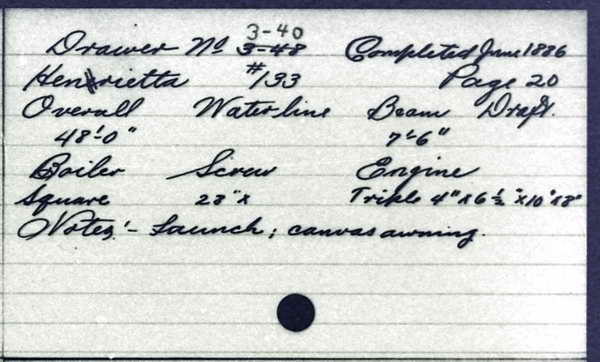 3-40
Drawer No 3-48 Completed June 1886
Henrietta #133 Page 20
Overall Water-line Beam Draft.
48'-0" 7'-6"
Boiler Screw Engine
Square 28" x Triple 4" x 6 1/2" x 10" x 8"
Notes:- Launch; canvas awning.